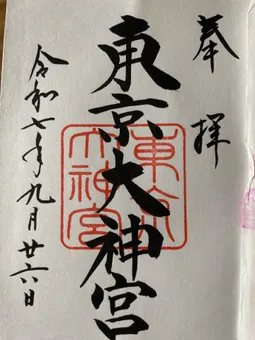 奉拝
東京大神宮
東京大神宮
令和七年九月廿六日